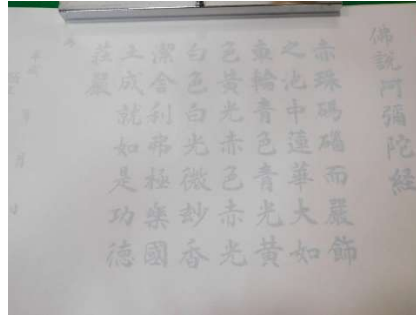 佛說阿彌陀經
赤珠碼碯而嚴飾
之池中蓮華大如
車輪青色青光黃
色黃光赤色赤光
白色白光微妙香
潔舍利弗極樂國
土成就如是功德
莊嚴
年 月